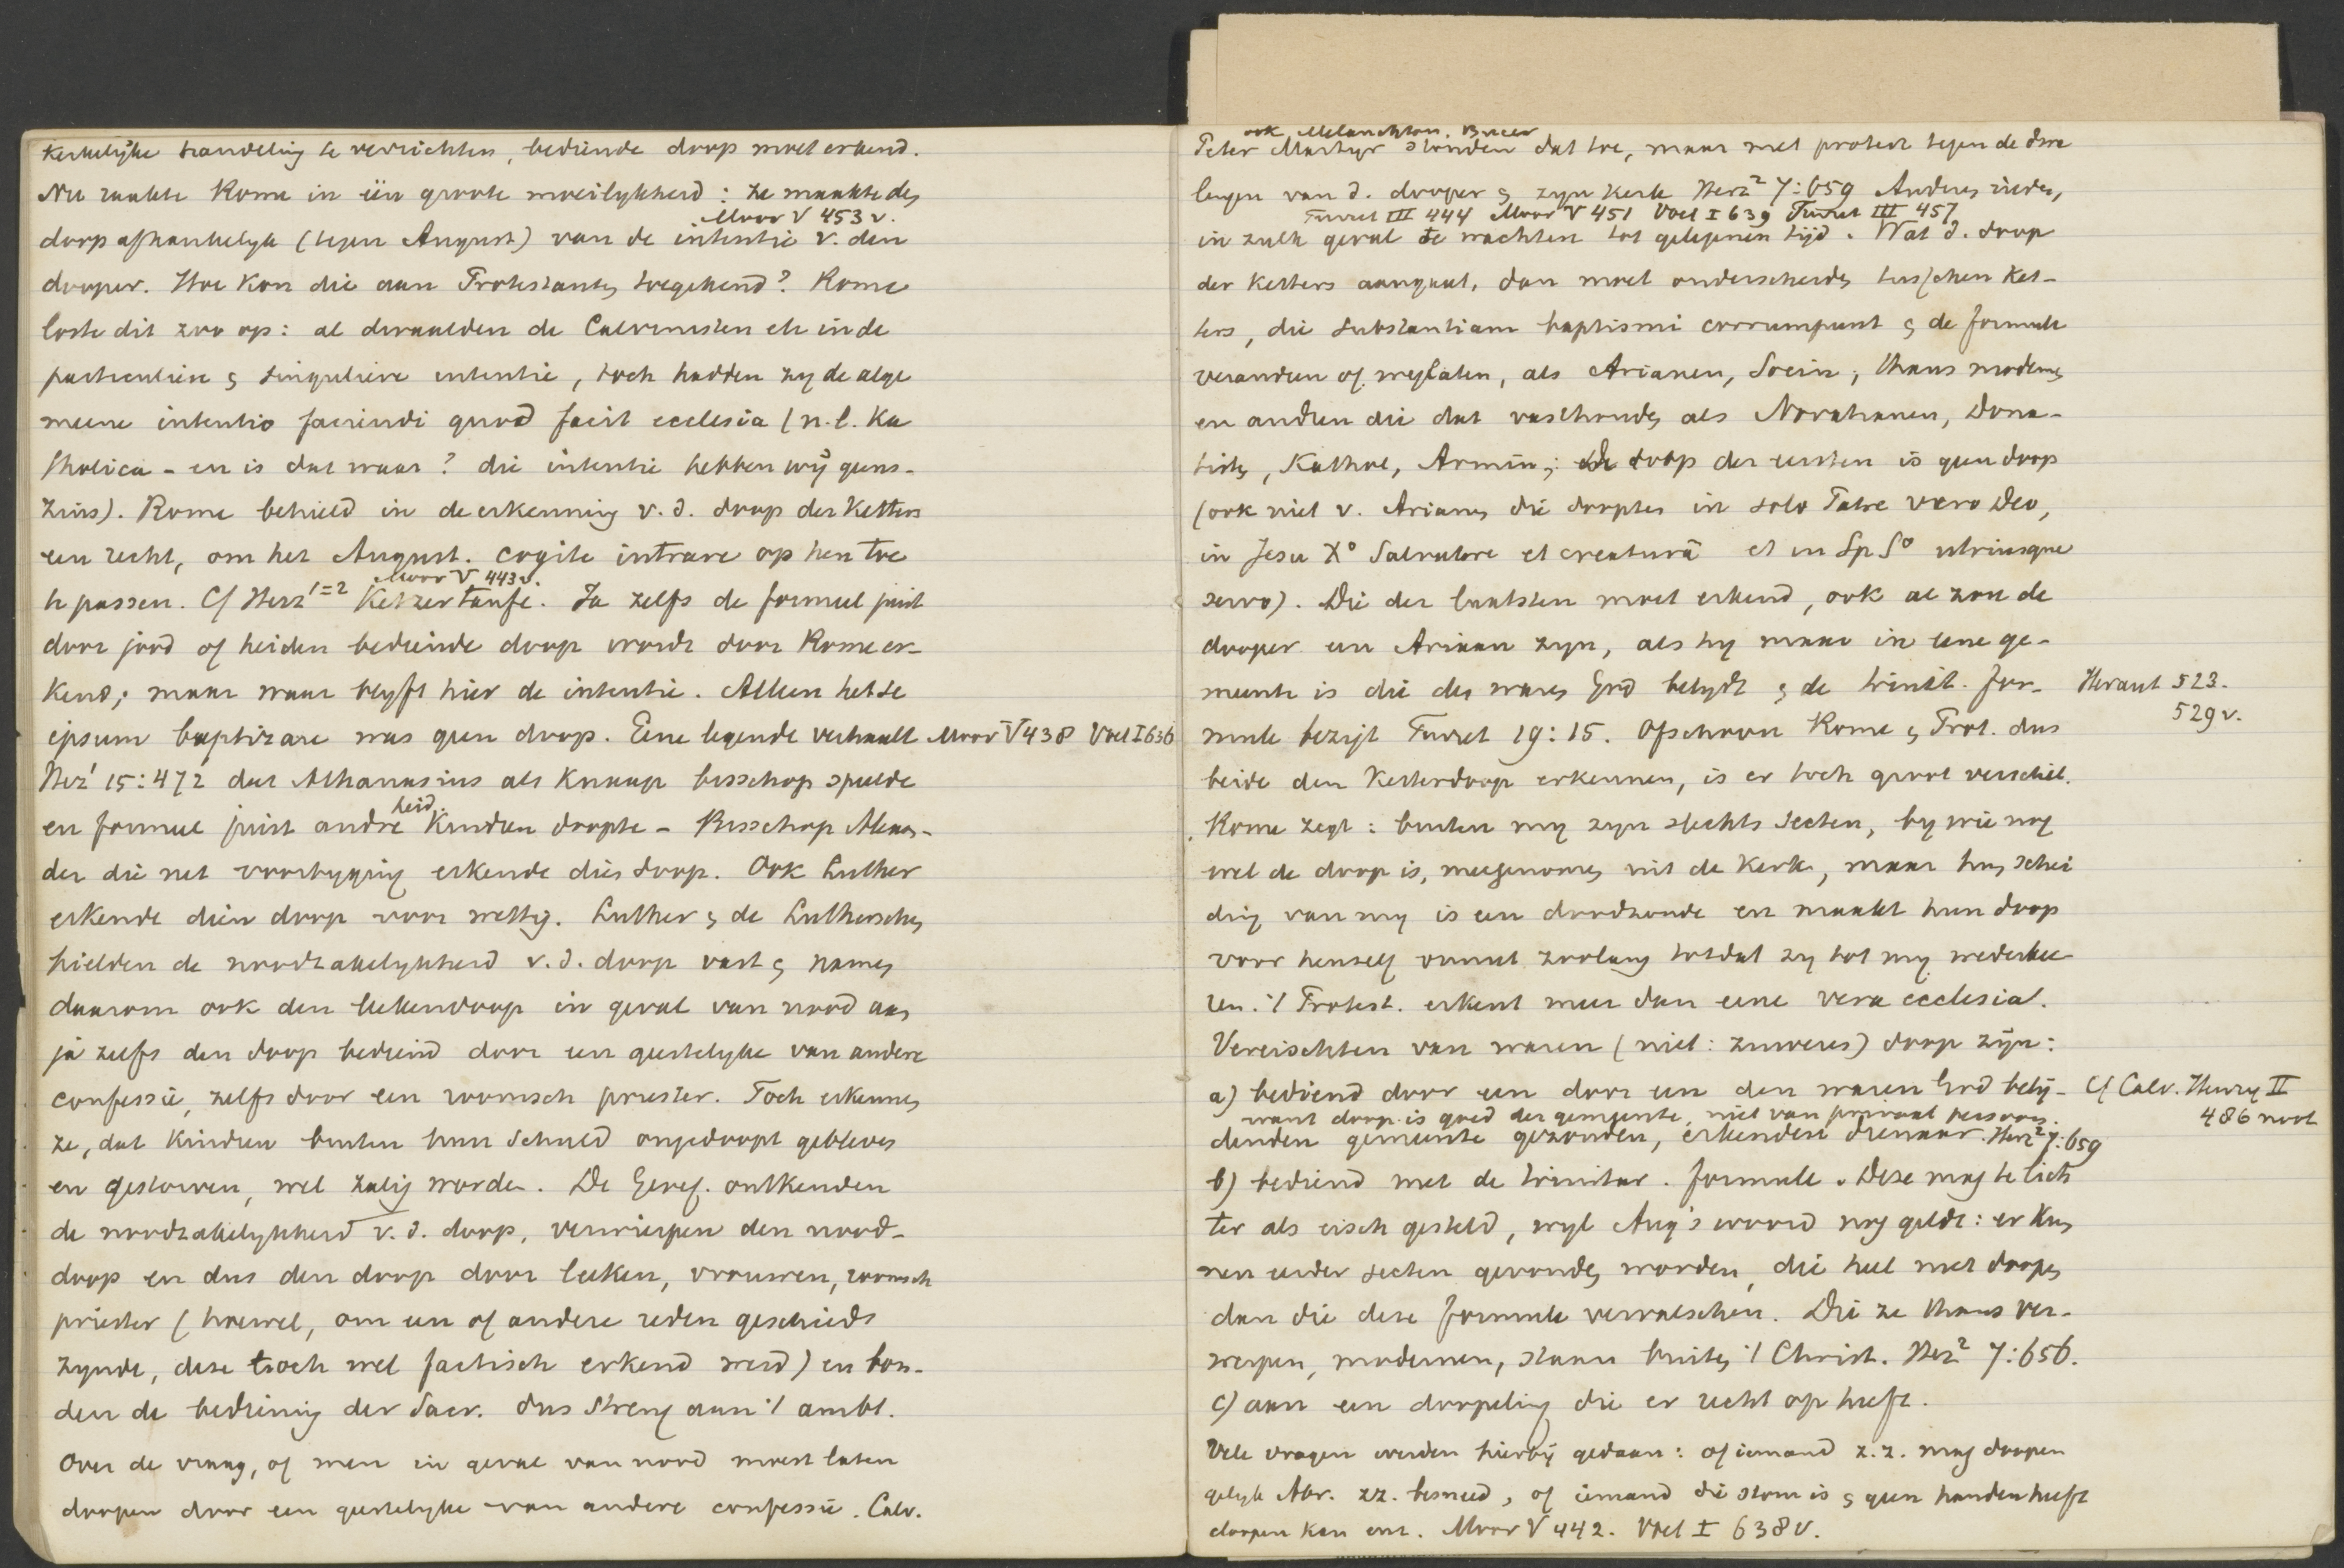 kerkelijke handeling te verrichten, bediende doop moet erkend.
Nu raakte Rome in één groote moeilykheid: ze maakte den
Moor V 453 v.
doop afhankelyk (tegen August.) van de intentie v. den
dooper. Hoe kon die aan Protestanten toegekend? Rome
loste dit zoo op: al dwaalden de Calvinisten etc in de
particuliere & singuliere intentie, toch hadden zy de alge
meene intentio faciendi quod facit ecclesia (n.l. Ka
tholica - en is dat waar? die intentie hebben wij geens-
zins). Rome behield in de erkenning v. d. doop der ketters
een recht, om het August. cogite intrare op hen toe
Moor V 443 v.
te passen. Cf Herz 1=2 Ketzertaufe. Ja zelfs de formeel juist
door jood of heiden bediende doop wordt door Rome er-
kend; maar waar blyft hier de intentie. Alleen het se
ipsum baptizare was geen doop. Eene legende verhaalt Moor V 438 Voet I 636
Herz¹ 15:472 dat Athanasius als knaap bisschop speelde
heid.
en formeel juist andre kindren doopte - Bisschop Alexan-
der die net voorbyging erkende dien doop. Ook Luther
erkende dien doop voor wettig. Luther & de Lutherschen
hielden de noodzakelykheid v. d. doop vast & namen
daarom ook den leekendoop in geval van nood aan
ja zelfs den doop bediend door een geestelyke van andere
confessie, zelfs door een roomsch priester. Toch erkennen
ze, dat kindren buiten hun schuld ongedoopt gebleven
en gestorven, wel zalig worden. De Geref. ontkenden
de noodzakelykheid v. d. doop, verwierpen den nood-
doop en dus den doop door leeken, vrouwen, roomsch
priester (hoewel, om een of andere reden geschied
zynde, deze toch wel factisch erkend werd) en bon-
den de bediening der Sacr. dus streng aan 't ambt.
Over de vraag, of men in geval van nood moest laten
doopen door een geestelyke van andere confessie. Calv.
ook Melanchton. Bucer
Peter Martyr stonden dat toe, maar met protest tegen de dwa
lingen van d. dooper & zyn kerk Herz² 7:659 Anderen rieden,
Turret III 444 Moor V 451 Voet I 639 Turret III 457
in zulk geval te wachten tot gelegenen tijd. Wat d. doop
der ketters aangaat, dan moet onderscheiden tusschen ket-
ters, die substantiam baptismi corrumpunt & de formule
veranderen of weglaten, als Arianen, Socin; thans modernen
en andren die dat vasthouden als Novatianen, Dona-
tisten, Kathol, Armin; de doop der eersten is geen doop
(ook niet v. Arianen die doopten in solo Patre vero Deo,
in Jesu Xo Salvatore et creaturâ et in Sp So utriusque
servo). Die der laatsten moet erkend, ook al zou de
dooper een Ariaan zyn, als hy maar in eene ge-
meente is die den waren God belydt & de trinit. for-
Heraut 523.
529 v.
mule bezigt Turret 19:15. Ofschoon Rome & Prot. dus
beide den Ketterdoop erkennen, is er toch groot verschil.
Rome zegt: buiten my zyn slechts secten, by wie nog
wel de doop is, meegenomen uit de Kerk, maar hun schei
ding van my is een doodzonde en maakt hun doop
voor henzelf onnut zoolang totdat zy tot my wederkee
ren. 't Protest. erkent meer dan eene vera ecclesia.
Vereischten van waren (niet: zuiveren) doop zijn:
a) bediend door een door een den waren God belij-
Cf Calv. Henry II
486 noot
want doop is goed der gemeente, niet van privaat persoon.
denden gemeente gezonden, erkenden dienaar. Herz² 7:659
b) bediend met de trinitar. formule. Deze mag te lich
ter als eisch gesteld, wyl Aug's woord nog geldt: er kun
nen eerder secten gevonden worden, die heel niet doopen
dan die deze formule vervalschen. Die ze thans ver-
werpen, modernen, staan buiten 't Christ. Herz² 7:656.
c) aan een doopeling die er recht op heeft.
Vele vragen werden hierbij gedaan: of iemand z.z. mag doopen
gelyk Abr. zz. besneed, of iemand die stom is & geen handen heeft
doopen kan enz. Moor V 442. Voet I 638 v.